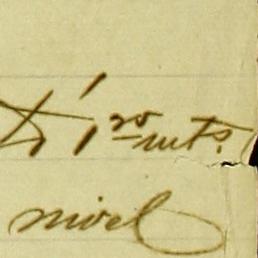 á 1.20 mts.
nivel